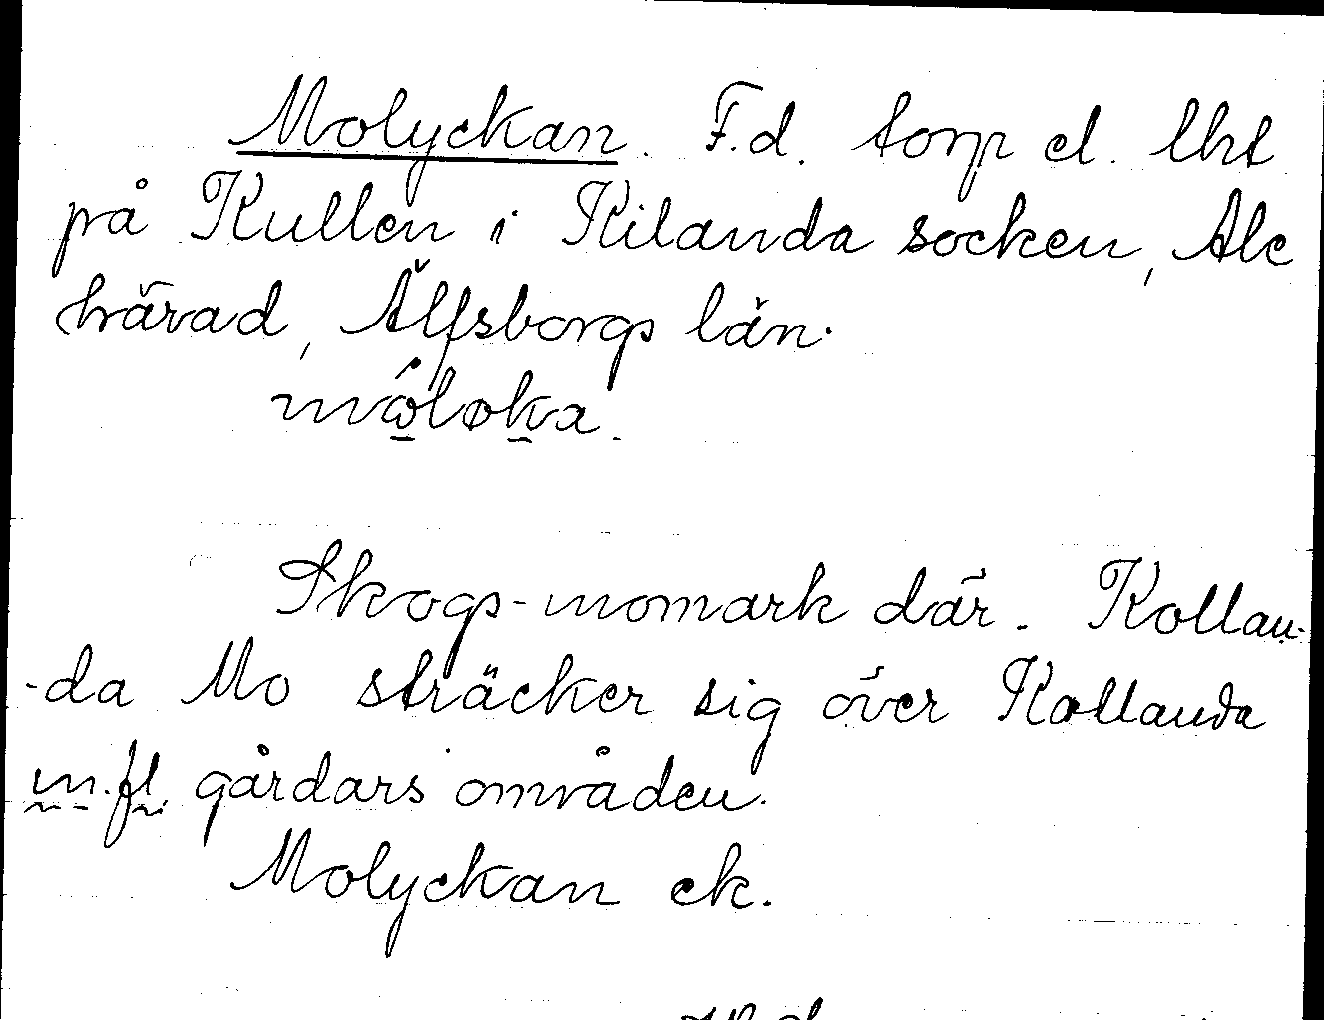 Molyckan. F.d. torp el. lht
på Kullen i Kilanda socken, Ale
härad, Älfsborgs län.
Skogs-momark där. Kollan-
-da Mo sträcker sig över Kollanda
m.fl. gårdars områden.
Molyckan ek.